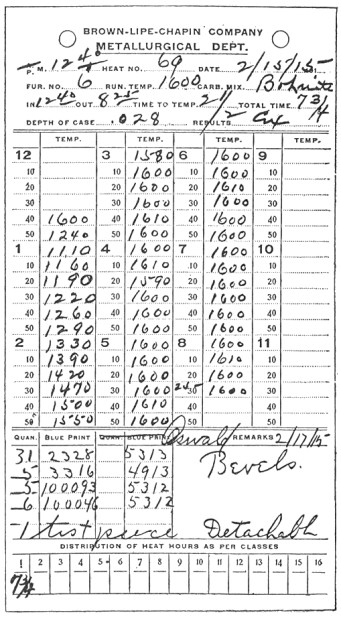 BROWN-LIPE-CHAPIN COMPANY
METALLURGICAL DEPT.
P. M. 12 40 HEAT NO. 69 DATE 2/15/15
FUR. NO. 6 RUN. TEMP. 1600 CARB. MIX. Bohnitz
IN 12 40 OUT. 8 25 TIME TO TEMP. 2 1/2 TOTAL TIME 7 3/4
DEPTH OF CASE .028 RESULTS
TEMP. TEMP. TEMP. TEMP.
12 3 1580 6 1600 9
10 10 1600 10 1600 10
20 20 1600 20 1610 20
30 30 1600 30 1600 30
40 1600 40 1610 40 1600 40
50 1240 50 1600 50 1600 50
1 1110 4 1600 7 1600 10
10 1160 10 1610 10 1600 10
20 1190 20 1590 20 1600 20
30 1220 30 1600 30 1600 30
40 1260 40 1600 40 1600 40
50 1290 50 1600 50 1600 50
2 1330 5 1600 8 1600 11
10 1390 10 1600 10 1610 10
20 1420 20 1600 20 1600 20
30 1470 30 1600 30 1600 30
40 1500 40 1610 40 40
50 1550 50 1600 50 50
QUAN. BLUE PRINT QUAN. BLUE PRINT Oswald REMARKS 2/17/15
31 2328 5313 Bevels.
5 3316 4913
5 100093 5312
6 100046 5312
1 test piece Detachabh
DISTRIBUTION OF HEAT HOURS AS PER CLASSES
1 2 3 4 5 6 7 8 9 10 11 12 13 14 15 16
7 3/4